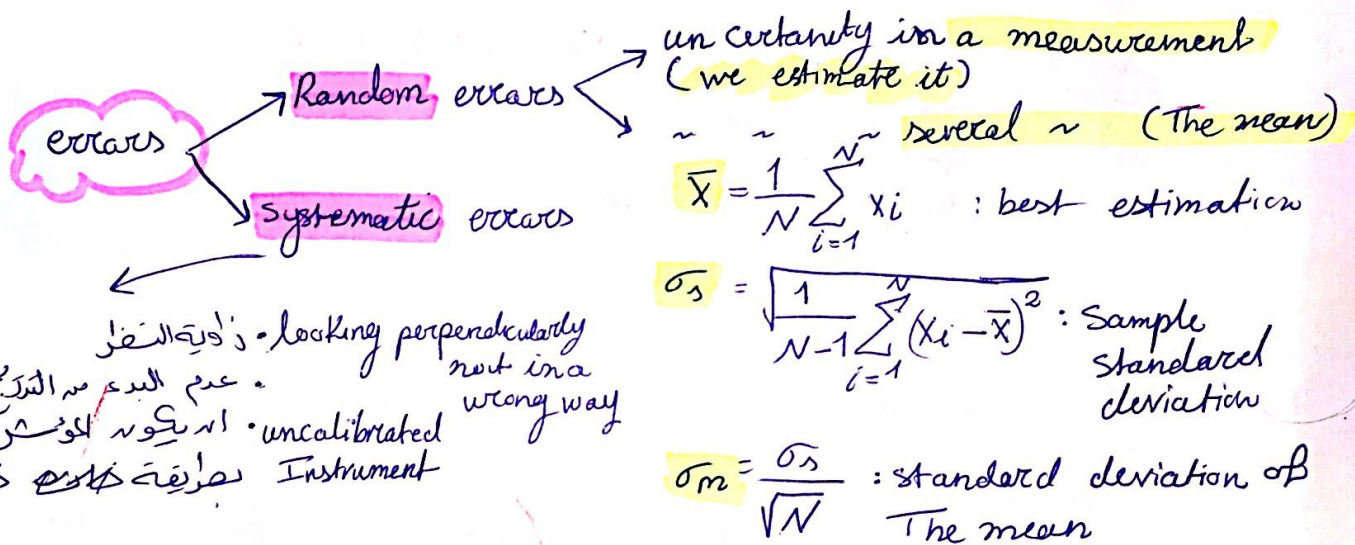 errors
Random errors
un certanity in a measurement
(we estimate it)
~ ~ ~ several ~ (The mean)
x̄ = 1/N ∑_{i=1}^{N} xi : best estimation
σs = √(1/(N-1) ∑_{i=1}^{N} (xi - x̄)²) : Sample
standard
deviation
σm = σs/√N : standard deviation of
The mean
systematic errors
زاوية النظر • looking perpendicularly
not in a
wrong way
• عدم البدء من
ان يكون المؤشر • uncalibrated
بطريقة Instrument